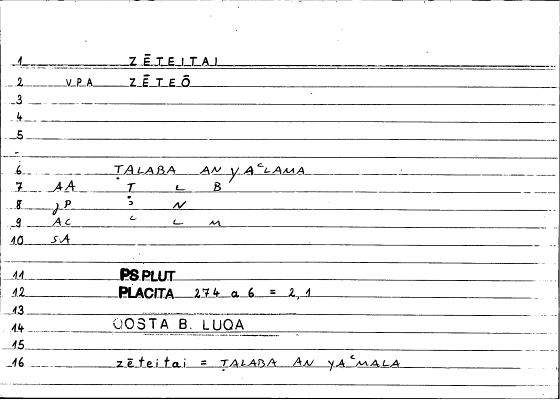 1 ZĒTEITAI
2 VPA ZĒTEŌ
3
4
5
6 ṬALABA AN YAʿLAMA
7 AA Ṭ L B
8 ʾ N
9 AC ʿ L M
10 SA
11 PS PLUT
12 PLACITA 274 a 6 = 2,1
13
14 QOSTA B. LUQA
15
16 zēteitai = ṬALABA AN YAʿMALA